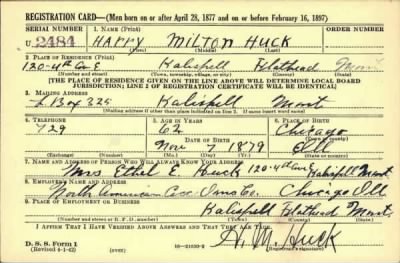 REGISTRATION CARD—(Men born on or after April 28, 1877 and on or before February 16, 1897)
SERIAL NUMBER 1. NAME (Print) ORDER NUMBER
U 2484 HARRY MILTON HUCK
(First) (Middle) (Last)
2. PLACE OF RESIDENCE (Print)
120-4th Ave E Kalispell Flathead Mont
(Number and street) (Town, township, village, or city) (County) (State)
[THE PLACE OF RESIDENCE GIVEN ON THE LINE ABOVE WILL DETERMINE LOCAL BOARD
JURISDICTION; LINE 2 OF REGISTRATION CERTIFICATE WILL BE IDENTICAL]
3. MAILING ADDRESS
Box 325 Kalispell Mont
[Mailing address if other than place indicated on line 2. If same insert word same]
4. TELEPHONE 5. AGE IN YEARS 6. PLACE OF BIRTH
729 62 Chicago
DATE OF BIRTH (Town or county)
Nov 7 1879 Ill
(Exchange) (Number) (Mo.) (Day) (Yr.) (State or country)
7. NAME AND ADDRESS OF PERSON WHO WILL ALWAYS KNOW YOUR ADDRESS
Mrs Ethel E Huck 120-4th Ave E Kalispell Mont
8. EMPLOYER'S NAME AND ADDRESS
North American Acc Insu Co. Chicago Ill
9. PLACE OF EMPLOYMENT OR BUSINESS
Kalispell Flathead Mont.
(Number and street or R. F. D. number) (Town) (County) (State)
I AFFIRM THAT I HAVE VERIFIED ABOVE ANSWERS AND THAT THEY ARE TRUE.
D. S. S. Form 1
(Revised 4-1-42) 16—21630-2 H. M. Huck